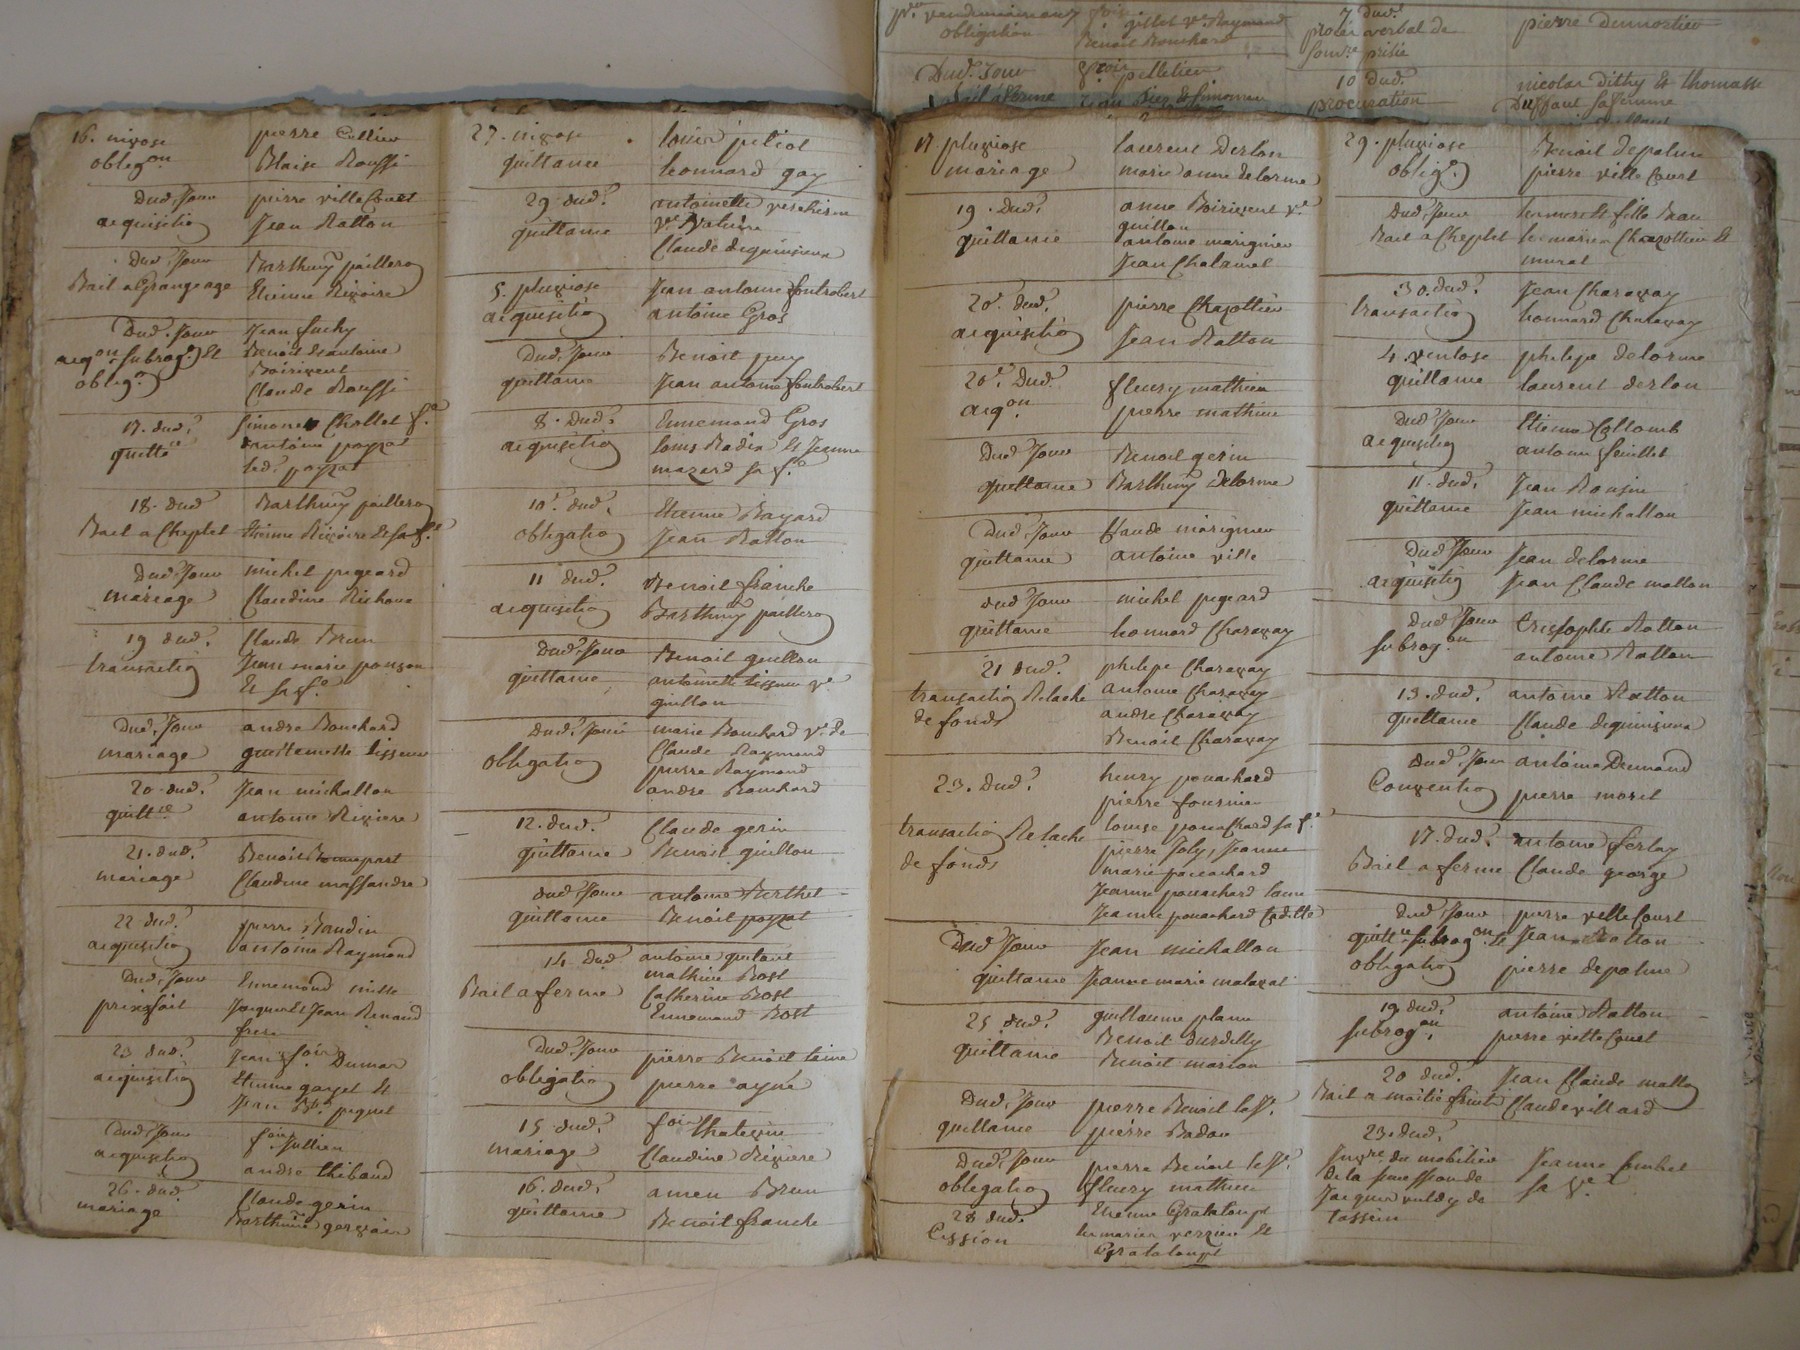 obligation
Benoit Bouchard
7 dud.
procès verbal de
pierre Dumortier
Dud. Jour
pelletier
10 dud.
procuration
nicolas Dithy et thomasse
16. nivose
obligon
pierre Cellier
Blaise Roussi
Dud. Jour
acquisitio
pierre villecourt
Jean Ratton
Dud. Jour
Bail a Grangeage
Barthmy paillero
Etienne Rivoire
Dud. Jour
acqon subrogon et
obligon
Jean fuchy
Benoit et antoine
Boirivent
Claude Roussi
17. dud.
quittce
Simone Chollet fe
antoine payzat
led. payzat
18. dud
Bail a Cheptel
Barthmy paillero
Etienne Rivoire et sa fe
Dud. Jour
mariage
michel pegeard
Claudine Richoux
19 dud.
transactio
Claude Brun
Jean marie ponson
et sa fe
Dud. Jour
mariage
andre Bouchard
guillemette tisseur
20. dud.
quittce
Jean michallon
antoine Riviere
21. dud.
mariage
Benoit Bonnepart
Claudine massandre
22 dud.
acquisitio
pierre Baudin
antoine Raymond
Dud. Jour
prixfait
Ennemond mille
Jacques et Jean Renaud
frere
23 dud.
acquisitio
Jean fois Dumas
Etienne gayet et
Jean Bte piquet
Dud. Jour
acquisitio
fois Jullien
andre thibaud
26. dud.
mariage
Claude gerin
Barthmie gervais
27. nivose
quittance
louis petiot
leonnard gay
29 dud.
quittance
antoinette vercherin
ve Matrine
Claude deguinieux
5. pluviose
acquisitio
Jean antoine fontrobert
antoine Gros
Dud. Jour
quittance
Benoit puy
Jean antoine fontrobert
8. dud.
acquisitio
Ennemond Gros
louis Radix et Jeanne
mazard sa fe
10. dud.
obligatio
Etienne Bayard
Jean Ratton
11 dud.
acquisitio
Benoit franche
Barthmy paillero
Dud. Jour
quittance
Benoit guillon
antoinette tisseur ve
guillon
Dud. Jour
obligatio
marie Bouchard ve de
Claude Raymond
pierre Raymond
andre Bouchard
12. dud.
quittance
Claude gerin
Benoit guillon
Dud. Jour
quittance
antoine Berthet
Benoit payzat
14 dud
Bail a ferme
antoine guitant
mathieu Bost
Catherine Bost
Ennemond Bost
Dud. Jour
obligatio
pierre Benoit laine
pierre ayné
15. dud.
mariage
fois thatevin
Claudine Riviere
16. dud.
quittance
amen Brun
Benoit franche
17 pluviose
mariage
laurent Derlon
marie anne delorme
19. Dud.
quittance
anne Boirivent ve
guillon
antoine marignier
Jean Chalamel
20. dud.
acquisitio
pierre Chazottier
Jean Ratton
20. Dud.
acqon
fleury mathieu
pierre mathieu
Dud Jour
quittance
Benoit gerin
Barthmy delorme
Dud. Jour
quittance
Claude marignier
antoine ville
dud Jour
quittance
michel pegeard
leonnard Charavay
21 dud.
transactio Relache
de fonds
philipe Charavay
antoine Charavay
andre Charavay
Benoit Charavay
23. Dud.
transactio Relache
de fonds
henry pouachard
pierre fournier
louise pouachard sa fe
pierre Joly, Jeanne
marie pouachard
Jeanne pouachard laine
Jeanne pouachard Cadette
Dud Jour
quittance
Jean michallon
Jeanne marie malaval
25 dud.
quittance
guillaume plane
Benoit durdilly
Benoit marion
Dud. Jour
quittance
pierre Benoit
pierre Badou
Dud. Jour
obligatio
pierre Benoit
fleury mathieu
28 dud.
Cession
Etienne Grataloup
les mariés verrier et
Grataloup
29. pluviose
oblign
Benoit depalme
pierre villecourt
Dud. Jour
Bail a Cheptel
les mariés Chazottier et
murat
30. dud.
transactio
Jean Charavay
leonnard Charavay
4. ventose
quittance
philipe delorme
laurent derlon
Dud Jour
acquisitio
Etienne Collomb
antoine feuillet
11. dud.
quittance
Jean Rousin
Jean michallon
Dud Jour
acquisitio
Jean delorme
Jean Claude matton
Dud Jour
subrogon
Cristophle Ratton
antoine Ratton
13. dud.
quittance
antoine Ratton
Claude deguinieux
Dud. Jour
Conventio
antoine Durand
pierre morel
17. Dud.
Bail a ferme
antoine ferlay
Claude george
Dud. Jour
quittce subrogon et
obligatio
pierre villecourt
Jean Ratton
pierre depalme
19 dud.
subrogon
antoine Ratton
pierre villecourt
20 dud.
Bail a moitié fruits
Jean Claude matto
Claude villard
23. Dud.
Invre du mobilier
de la succession de
Jacques vuldy de
tassin
Jeanne Combet
sa ve